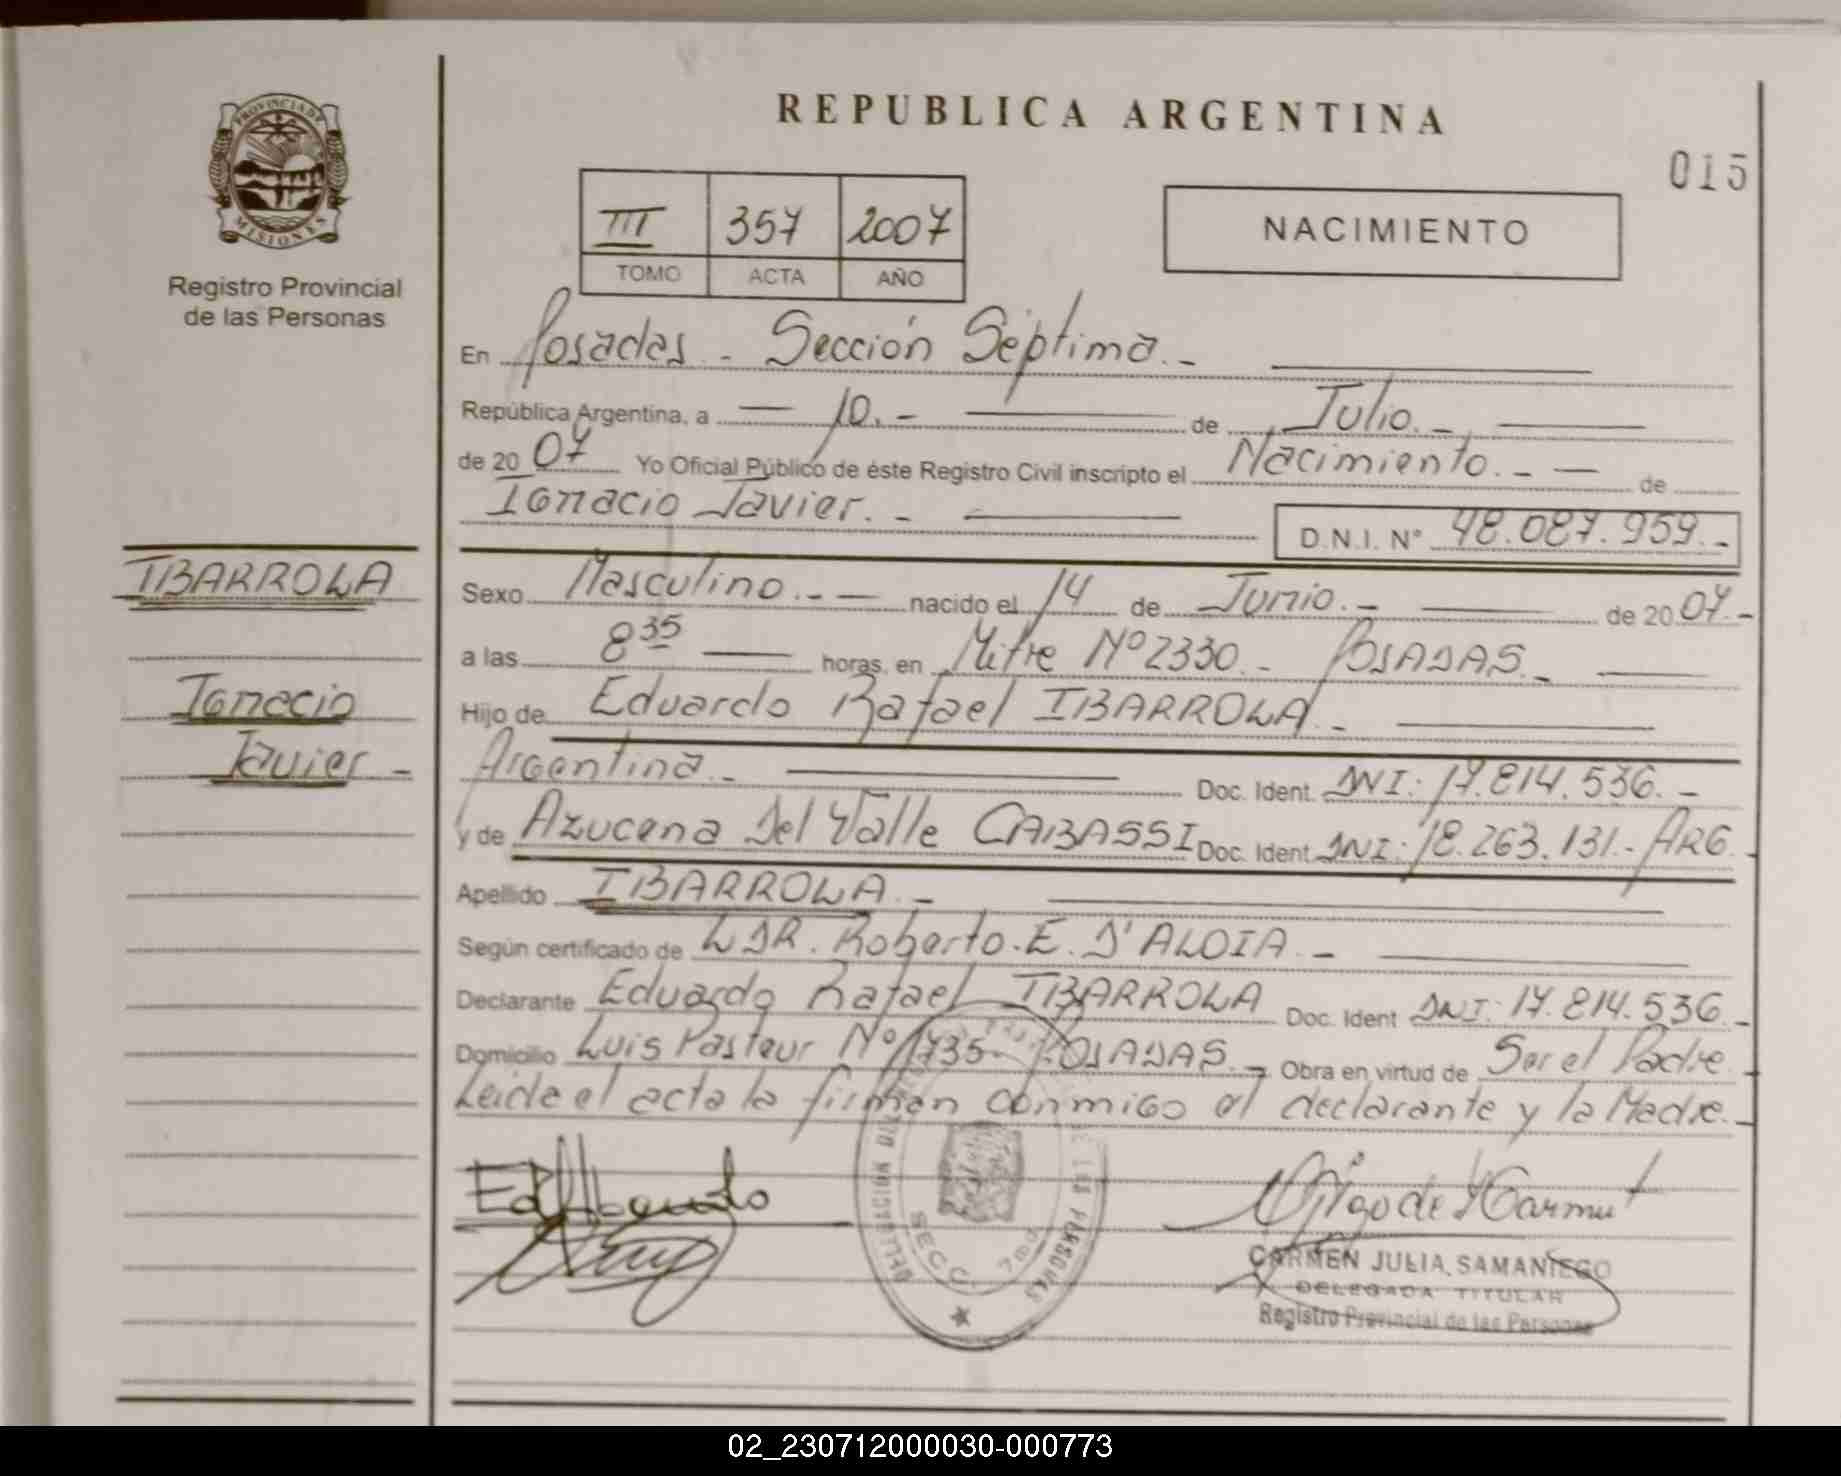 REPUBLICA ARGENTINA
015
PROVINCIA DE
MISIONES
Registro Provincial
de las Personas
III 357 2007
TOMO ACTA AÑO
NACIMIENTO
En Posadas - Sección Séptima.-
República Argentina, a 10.- de Julio.-
de 20 07 Yo Oficial Público de éste Registro Civil inscripto el Nacimiento.- de
Ignacio Javier.-
D.N.I. Nº 48.087.959.-
IBARROLA
Ignacio
Javier -
Sexo Masculino.- nacido el 14 de Junio.- de 20 07.-
a las 8 35 horas, en Mitre Nº 2330.- POSADAS.-
Hijo de Eduardo Rafael IBARROLA.-
Argentina.- Doc. Ident. DNI: 17.814.536.-
y de Azucena Del Valle CABASSI Doc. Ident. DNI: 18.263.131.- ARG.-
Apellido IBARROLA.-
Según certificado de LDR. Roberto.E. D'ALOIA.-
Declarante Eduardo Rafael IBARROLA Doc. Ident DNI: 17.814.536.-
Domicilio Luis Pasteur Nº 1735- POSADAS.- Obra en virtud de Ser el Padre
Leida el acta la firman conmigo el declarante y la Madre.-
SECC. 7ma
CARMEN JULIA SAMANIEGO
DELEGADA TITULAR
Registro Provincial de las Personas
02_230712000030-000773